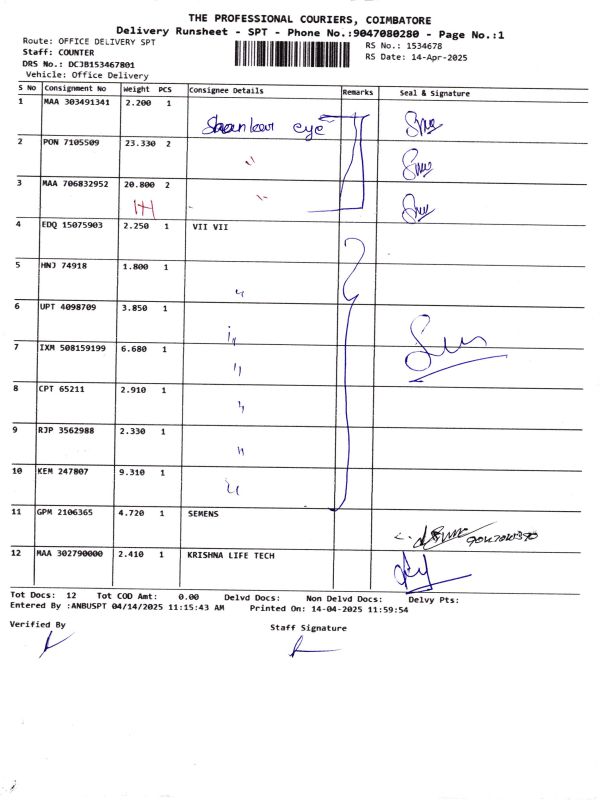 THE PROFESSIONAL COURIERS, COIMBATORE
Delivery Runsheet - SPT - Phone No.:9047080280 - Page No.:1
Route: OFFICE DELIVERY SPT
Staff: COUNTER
DRS No.: DCJB153467801
Vehicle: Office Delivery
RS No.: 1534678
RS Date: 14-Apr-2025
S No Consignment No Weight PCS Consignee Details Remarks Seal & Signature
1 MAA 303491341 2.200 1 Shankar eye
2 PON 7105509 23.330 2 "
3 MAA 706832952 20.800 2 "
4 EDQ 15075903 2.250 1 VII VII
5 HNJ 74918 1.800 1 "
6 UPT 4098709 3.850 1 "
7 IXM 508159199 6.680 1 "
8 CPT 65211 2.910 1 "
9 RJP 3562988 2.330 1 "
10 KEM 247807 9.310 1 "
11 GPM 2106365 4.720 1 SEMENS
12 MAA 302790000 2.410 1 KRISHNA LIFE TECH
Tot Docs: 12 Tot COD Amt: 0.00 Delvd Docs: Non Delvd Docs: Delvy Pts:
Entered By :ANBUSPT 04/14/2025 11:15:43 AM Printed On: 14-04-2025 11:59:54
Verified By
Staff Signature